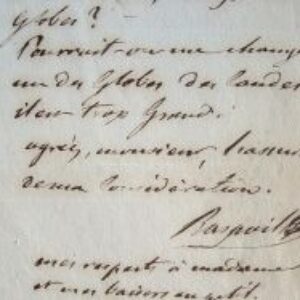 globes ?
Pourrait-on me chang
un des Globes des
il est trop Grand.
agréez, monsieur
de ma Considération.
Raspail
mes respects à madame
et mes baisers au petit